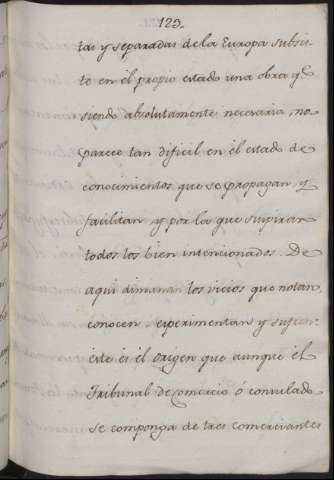 125.
tas y separadas de la Europa subsis-
te en el propio estado una obra q.e
siendo absolutamente necesaria, no
parece tan dificil en el estado de
conocimientos que se propagan, y
facilitan y por la que suspiran
todos los bien intencionados. De
aqui dimanan los vicios que notan,
conocen, experimentan y sufren
este es el origen que aunque el
Tribunal de comercio ó consulado
se componga de tres comerciantes